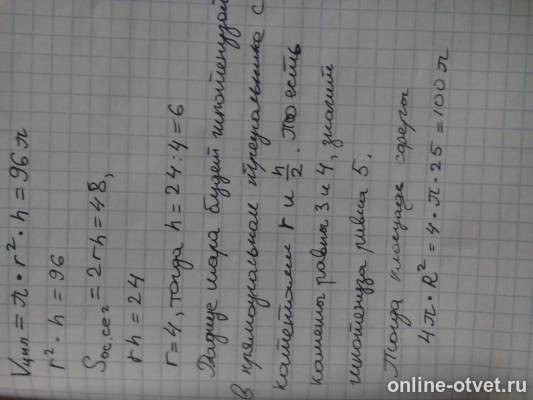 Vцил = π · r² · h = 96π
r² · h = 96
Sос.сег = 2rh = 48,
rh = 24
r = 4, тогда h = 24 : 4 = 6
Радиус шара будет гипотенузой
в прямоугольном треугольнике с
катетами r и h/2. То есть
катеты равны 3 и 4, значит
гипотенуза равна 5.
Тогда площадь сферы
4π · R² = 4 · π · 25 = 100π
online-otvet.ru